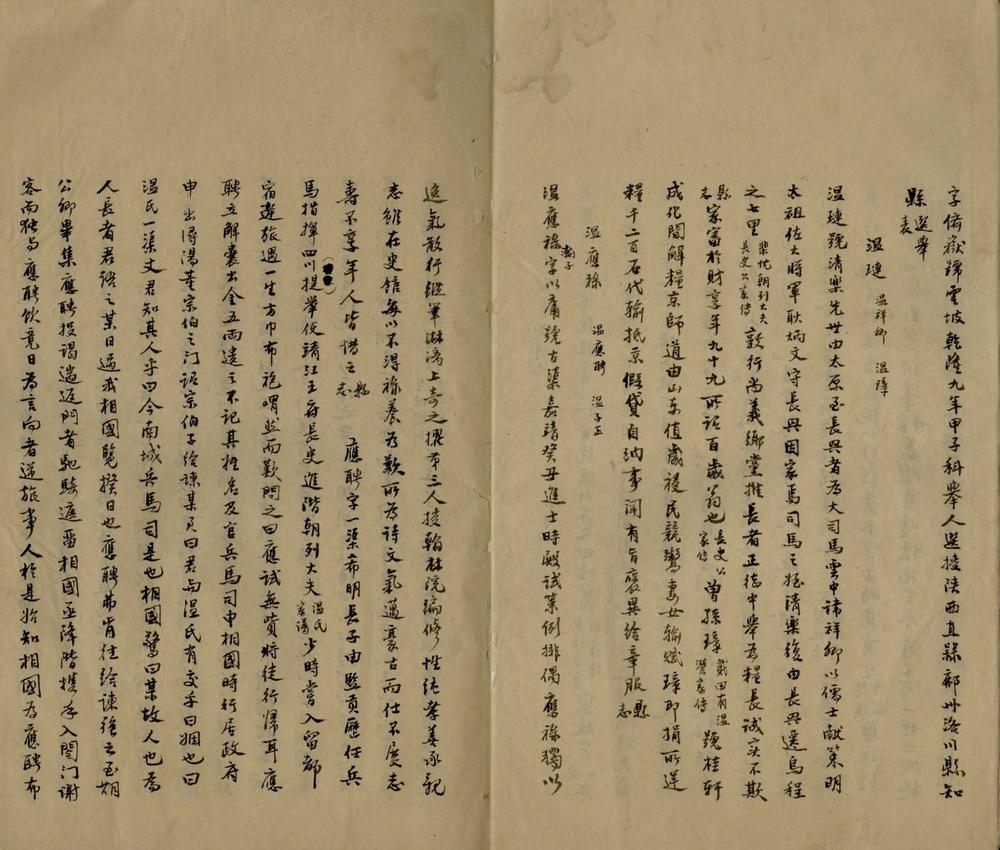 字儕嶽號雲坡乾隆九年甲子科舉人選授陝西直隸鄜州洛川縣知
縣選舉表
温璉 温祥卿 温璋
温璉號清樂先世由太原至長興者為大司馬雲中諱祥卿以儒士獻策明
太祖佐大將軍耿炳文守長興因家焉司馬之姪清樂後由長興遷烏程
之七里 朝列大夫長史公家傳 敦行尚義鄉黨推長者正統中舉為糧長誠实不欺
縣志 家富於財享年九十九所謂百歲翁也 長史公家傳 曾孫璋 號桂軒
成化間解糧京師道由山东值歲祲民競鬻妻女輸賦璋即捐所运
糧千二百石代輸抵京假貸自纳事闻有旨褒異给章服 縣志
温應祿 温應聘 温子正
温應祿 勸子 字以庸號古渠嘉靖癸丑進士時殿試策例排偶應祿獨以
逸氣散行縱筆淋漓上奇之擢苐三人授翰林院编修性纯孝善承親
志雖在史館每以不得祿養为歎所为诗文氣邁蒼古而仕不展志
壽不享年人皆惜之 縣志 應聘字一渠希明長子由監貢歷任兵
馬指揮四川提舉使靖江王府長史進階朝列大夫 温氏家譜 少時嘗入留都
宿逆旅遇一生方巾布袍喟然而歎問之曰應试無貲將徒行归耳應
聘立解囊出金五两遺之不记其姓名及官兵馬司申相國時行居政府
申出潯陽董宗伯之门謂宗伯子给諫某曰君与温氏有交乎曰姻也曰
温氏一渠丈君知其人乎曰今南城兵馬司是也相國驚曰某故人也為
人長者君語之某日過我相國覽揆日也應聘弗肯往给諫强之至期
公卿畢集應聘投谒遄返門者馳騎遮留相國亟降階攜手入閤门謝
客而独与應聘飲竟日为言向者逆旅事人於是始知相國为應聘布